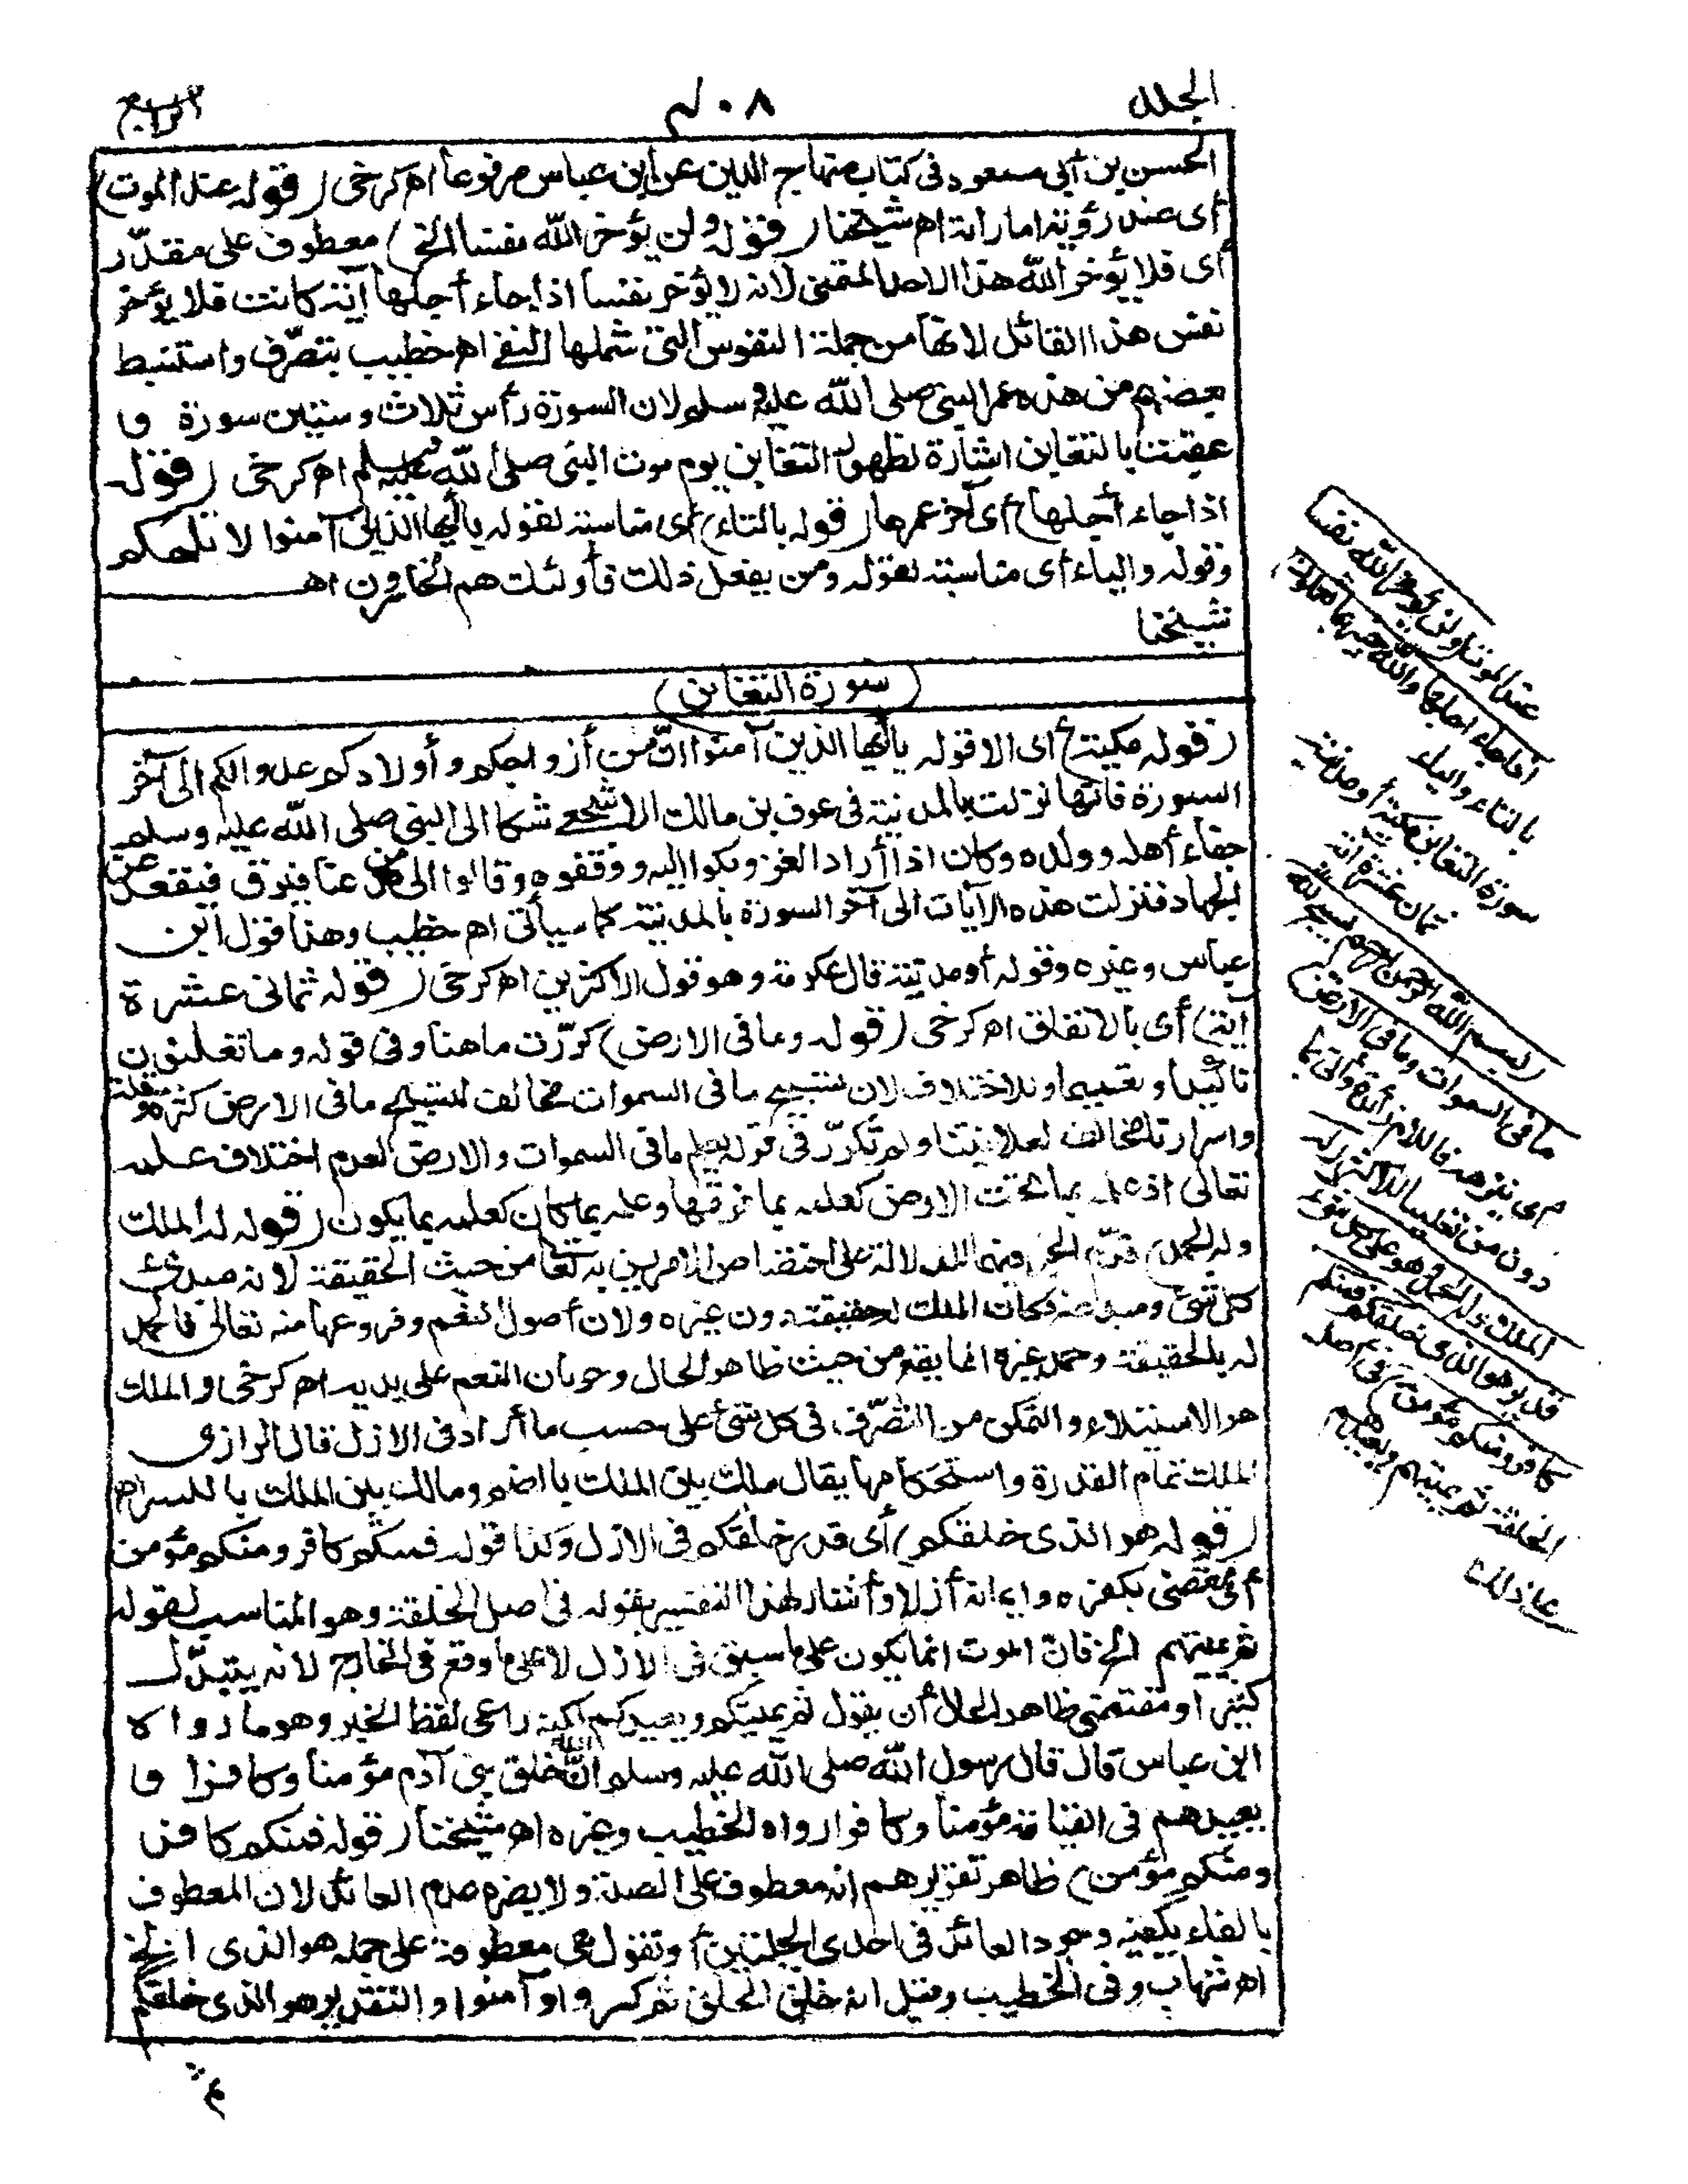 الجلد
٤٠٨
الرابع
الحسن بن أبي مسعود فى كتاب منهاج الدين عن ابن عباس مرفوعا اه كرخى (قوله عند الموت)
أى عند رؤية اماراته اه شيخنا (قوله ولن يؤخر الله نفسا الخ) معطوف على مقدّر
أى فلا يؤخر الله هذا الاحد المتمنى لانه لا يؤخر نفسا اذا جاء أجلها آية كانت فلا يؤخر
نفس هذا القائل لانها من جملة النفوس التى شملها النفى اه خطيب بتصرّف واستنبط
بعضهم من هذه عمر النبى صلى الله عليه وسلم لان السورة رأس ثلاث وستين سورة و
عقبت بالتغابن اشارة لظهور التغابن يوم موت النبى صلى الله عليه وسلم اه كرخى (قوله
اذا جاء أجلها) أى آخر عمرها (قوله بالتاء) أى مناسبة لقوله يا أيها الذين آمنوا لا تلهكم
وقوله والياء أى مناسبة لقوله ومن يفعل ذلك فأولئك هم الخاسرون اه
شيخنا
(سورة التغابن)
(قوله مكية) أى الا قوله يا أيها الذين آمنوا انّ من أزواجكم وأولادكم عدوا لكم الى آخر
السورة فانها نزلت بالمدينة فى عوف بن مالك الاشجعى شكا الى النبى صلى الله عليه وسلم
جفاء أهله وولده وكان اذا أراد الغزو بكوا اليه ووقفوه وقالوا الى من تدعنا فيرق فيقعد عن
الجهاد فنزلت هذه الآيات الى آخر السورة بالمدينة كما سيأتى اه خطيب وهذا قول ابن
عباس وغيره وقوله أو مدنية قال عكرمة وهو قول الاكثرين اه كرخى (قوله ثمانى عشرة
آية) أى بالاتفاق اه كرخى (قوله وما فى الارض) كرّرت ما هنا وفى قوله وما تعلنون
تأكيدا وتعميما وللاختلاف لان تسبيح ما فى السموات مخالف لتسبيح ما فى الارض كثرة وقلة
واسرارنا مخالف لعلانيتنا ولم تكرّر فى قوله يعلم ما فى السموات والارض لعدم اختلاف علمه
تعالى اذ علمه بما تحت الارض كعلمه بما فوقها وعلمه بما كان كعلمه بما يكون (قوله له الملك
وله الحمد) قدّم الخبر فيهما للدلالة على اختصاص الامرين به تعالى من حيث الحقيقة لانه مبدئ
كل شئ ومبدعه فكان الملك له حقيقة دون غيره ولان أصول النعم وفروعها منه تعالى فالحمد
له بالحقيقة وحمد غيره انما يقع من حيث ظاهر الحال وجريان النعم على يديه اه كرخى والملك
هو الاستيلاء والتمكن من التصرّف فى كل شئ على حسب ما أراد فى الازل قال الرازى
الملك تمام القدرة واستحكامها يقال ملك بيّن الملك بالضم ومالك بيّن الملك بالكسر اه
(قوله هو الذى خلقكم) أى قدر خلقكم فى الازل وكذا قوله فمنكم كافر ومنكم مؤمن
أى مقضى بكفره وايمانه أزلا وأشار لهذا التفسير بقوله فى أصل الخلقة وهو المناسب لقوله
ثم يميتهم الخ فان الموت انما يكون على ما سبق فى الازل لا على ما وقع فى الخارج لانه يتبدّل
كثيرا ومقتضى ظاهر الحال أن يقول ثم يميتكم ويعيدكم لكنه راعى لفظ الخبر وهو ما رواه
ابن عباس قال قال رسول الله صلى الله عليه وسلم انّ الله خلق بنى آدم مؤمنا وكافرا و
يعيدهم فى القيامة مؤمنا وكافرا رواه الخطيب وغيره اه شيخنا (قوله فمنكم كافر
ومنكم مؤمن) ظاهر تقريرهم انه معطوف على الصلة ولا يضره عدم العائد لان المعطوف
بالفاء يكفيه وجود العائد فى احدى الجملتين أو تقول هى معطوفة على جملة هو الذى الخ
اه شهاب وفى الخطيب وقيل انه خلق الخلق ثم كفروا وآمنوا والتقدير هو الذى خلقكم
عند الموت (ولن يؤخر الله نفسا
اذا جاء أجلها والله خبير بما تعملون)
بالتاء والياء
سورة التغابن مكية أو مدنية
ثمان عشرة آية
(بسم الله الرحمن الرحيم يسبح لله
ما فى السموات وما فى الارض)
أى ينزهه فاللام زائدة وأتى بما
دون من تغليبا للاكثر (له
الملك وله الحمد وهو على كل شئ
قدير هو الذى خلقكم فمنكم
كافر ومنكم مؤمن) فى أصل
الخلقة ثم يميتهم ويعيدهم
على ذلك